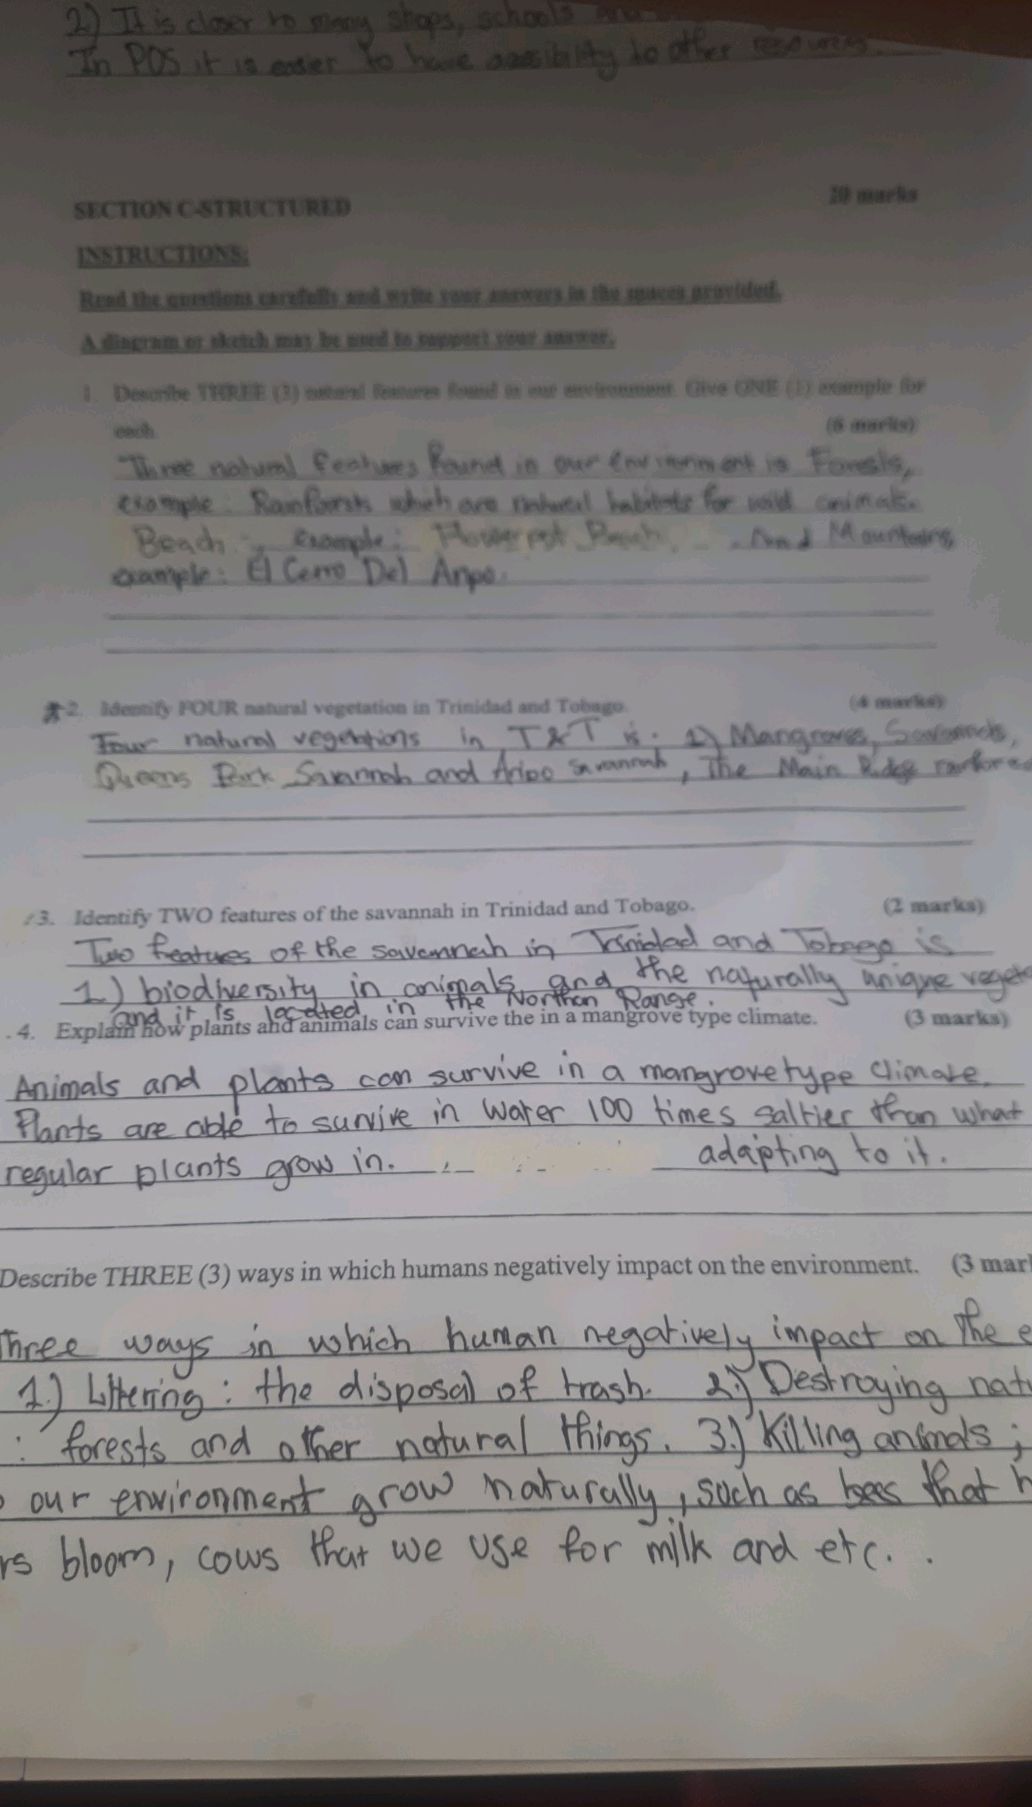 2) It is closer to many shops, schools
In POS it is easier to have assibility to other resources.
SECTION C-STRUCTURED 20 marks
INSTRUCTIONS:
Read the questions carefully and write your answers in the spaces provided.
A diagram or sketch may be used to support your answer.
1. Describe THREE (3) natural features found in our environment. Give ONE (1) example for
each. (6 marks)
Three natural features found in our environment is Forests,
example: Rainforests which are natural habitats for wild animals.
Beach: example: Flowerpot Beach. And Mountains,
example: El Cerro Del Aripo.
2. Identify FOUR natural vegetation in Trinidad and Tobago. (4 marks)
Four natural vegetations in T&T is: 1) Mangroves, Savannah,
Queens Park Savannah and Aripo Savannah, The Main Ridge rainfores
3. Identify TWO features of the savannah in Trinidad and Tobago. (2 marks)
Two features of the savannah in Trinidad and Tobago is
1) biodiversity in animals and the naturally unique veget
and it is located in the Northan Range.
4. Explain how plants and animals can survive the in a mangrove type climate. (3 marks)
Animals and plants can survive in a mangrove type climate.
Plants are able to survive in water 100 times saltier than what
regular plants grow in. adapting to it.
Describe THREE (3) ways in which humans negatively impact on the environment. (3 mar
Three ways in which human negatively impact on the e
1.) Littering: the disposal of trash. 2.) Destroying nat
: forests and other natural things. 3.) Killing animals;
our environment grow naturally, such as bees that h
rs bloom, cows that we use for milk and etc..